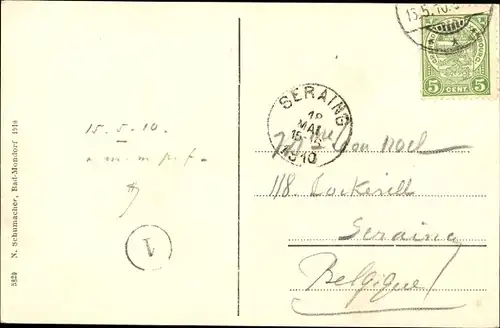 15.5.10.
5 CENT. 5
SERAING
18
MAI
15-
1910
15.5.10.
Noel
118. Cockerill
Seraing
Belgique!
1
5829 N. Schumacher, Bad-Mondorf 1910